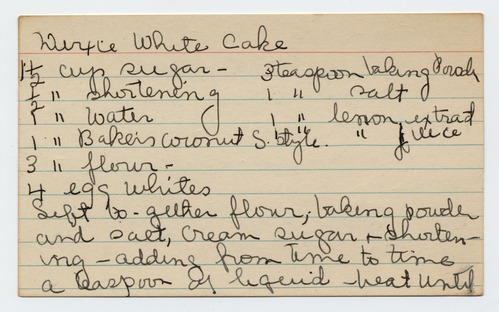 Dixie White Cake
1½ cup sugar - 3 teaspoon baking Powd
½ " shortening 1 " salt
1 " water 1 " lemon extract
1 " Bakers coconut S. Style. " " juice
3 " flour -
4 egg whites
Sift to-gether flour, baking powder
and salt, cream sugar + shorten-
ing - adding from time to time
a teaspoon of liquid beat until